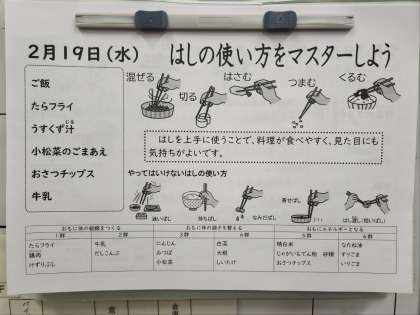 2月19日(水)
はしの使い方をマスターしよう
ご飯
たらフライ
うすくず汁
じる
小松菜のごまあえ
おさつチップス
牛乳
混ぜる
切る
はさむ
つまむ
くるむ
はしを上手に使うことで、料理が食べやすく、見た目にも
気持ちがよいです。
やってはいけないはしの使い方
迷いばし
持ちばし
なみだばし
寄せばし
はし渡し(拾いばし)
おもに体の組織をつくる
おもに体の調子を整える
おもにエネルギーとなる
1群 2群 3群 4群 5群 6群
たらフライ 牛乳 にんじん 白菜 精白米 なたね油
鶏肉 だしこんぶ みつば 大根 じゃがいもでん粉 砂糖 すりごま
けずりぶし 小松菜 しいたけ おさつチップス いりごま